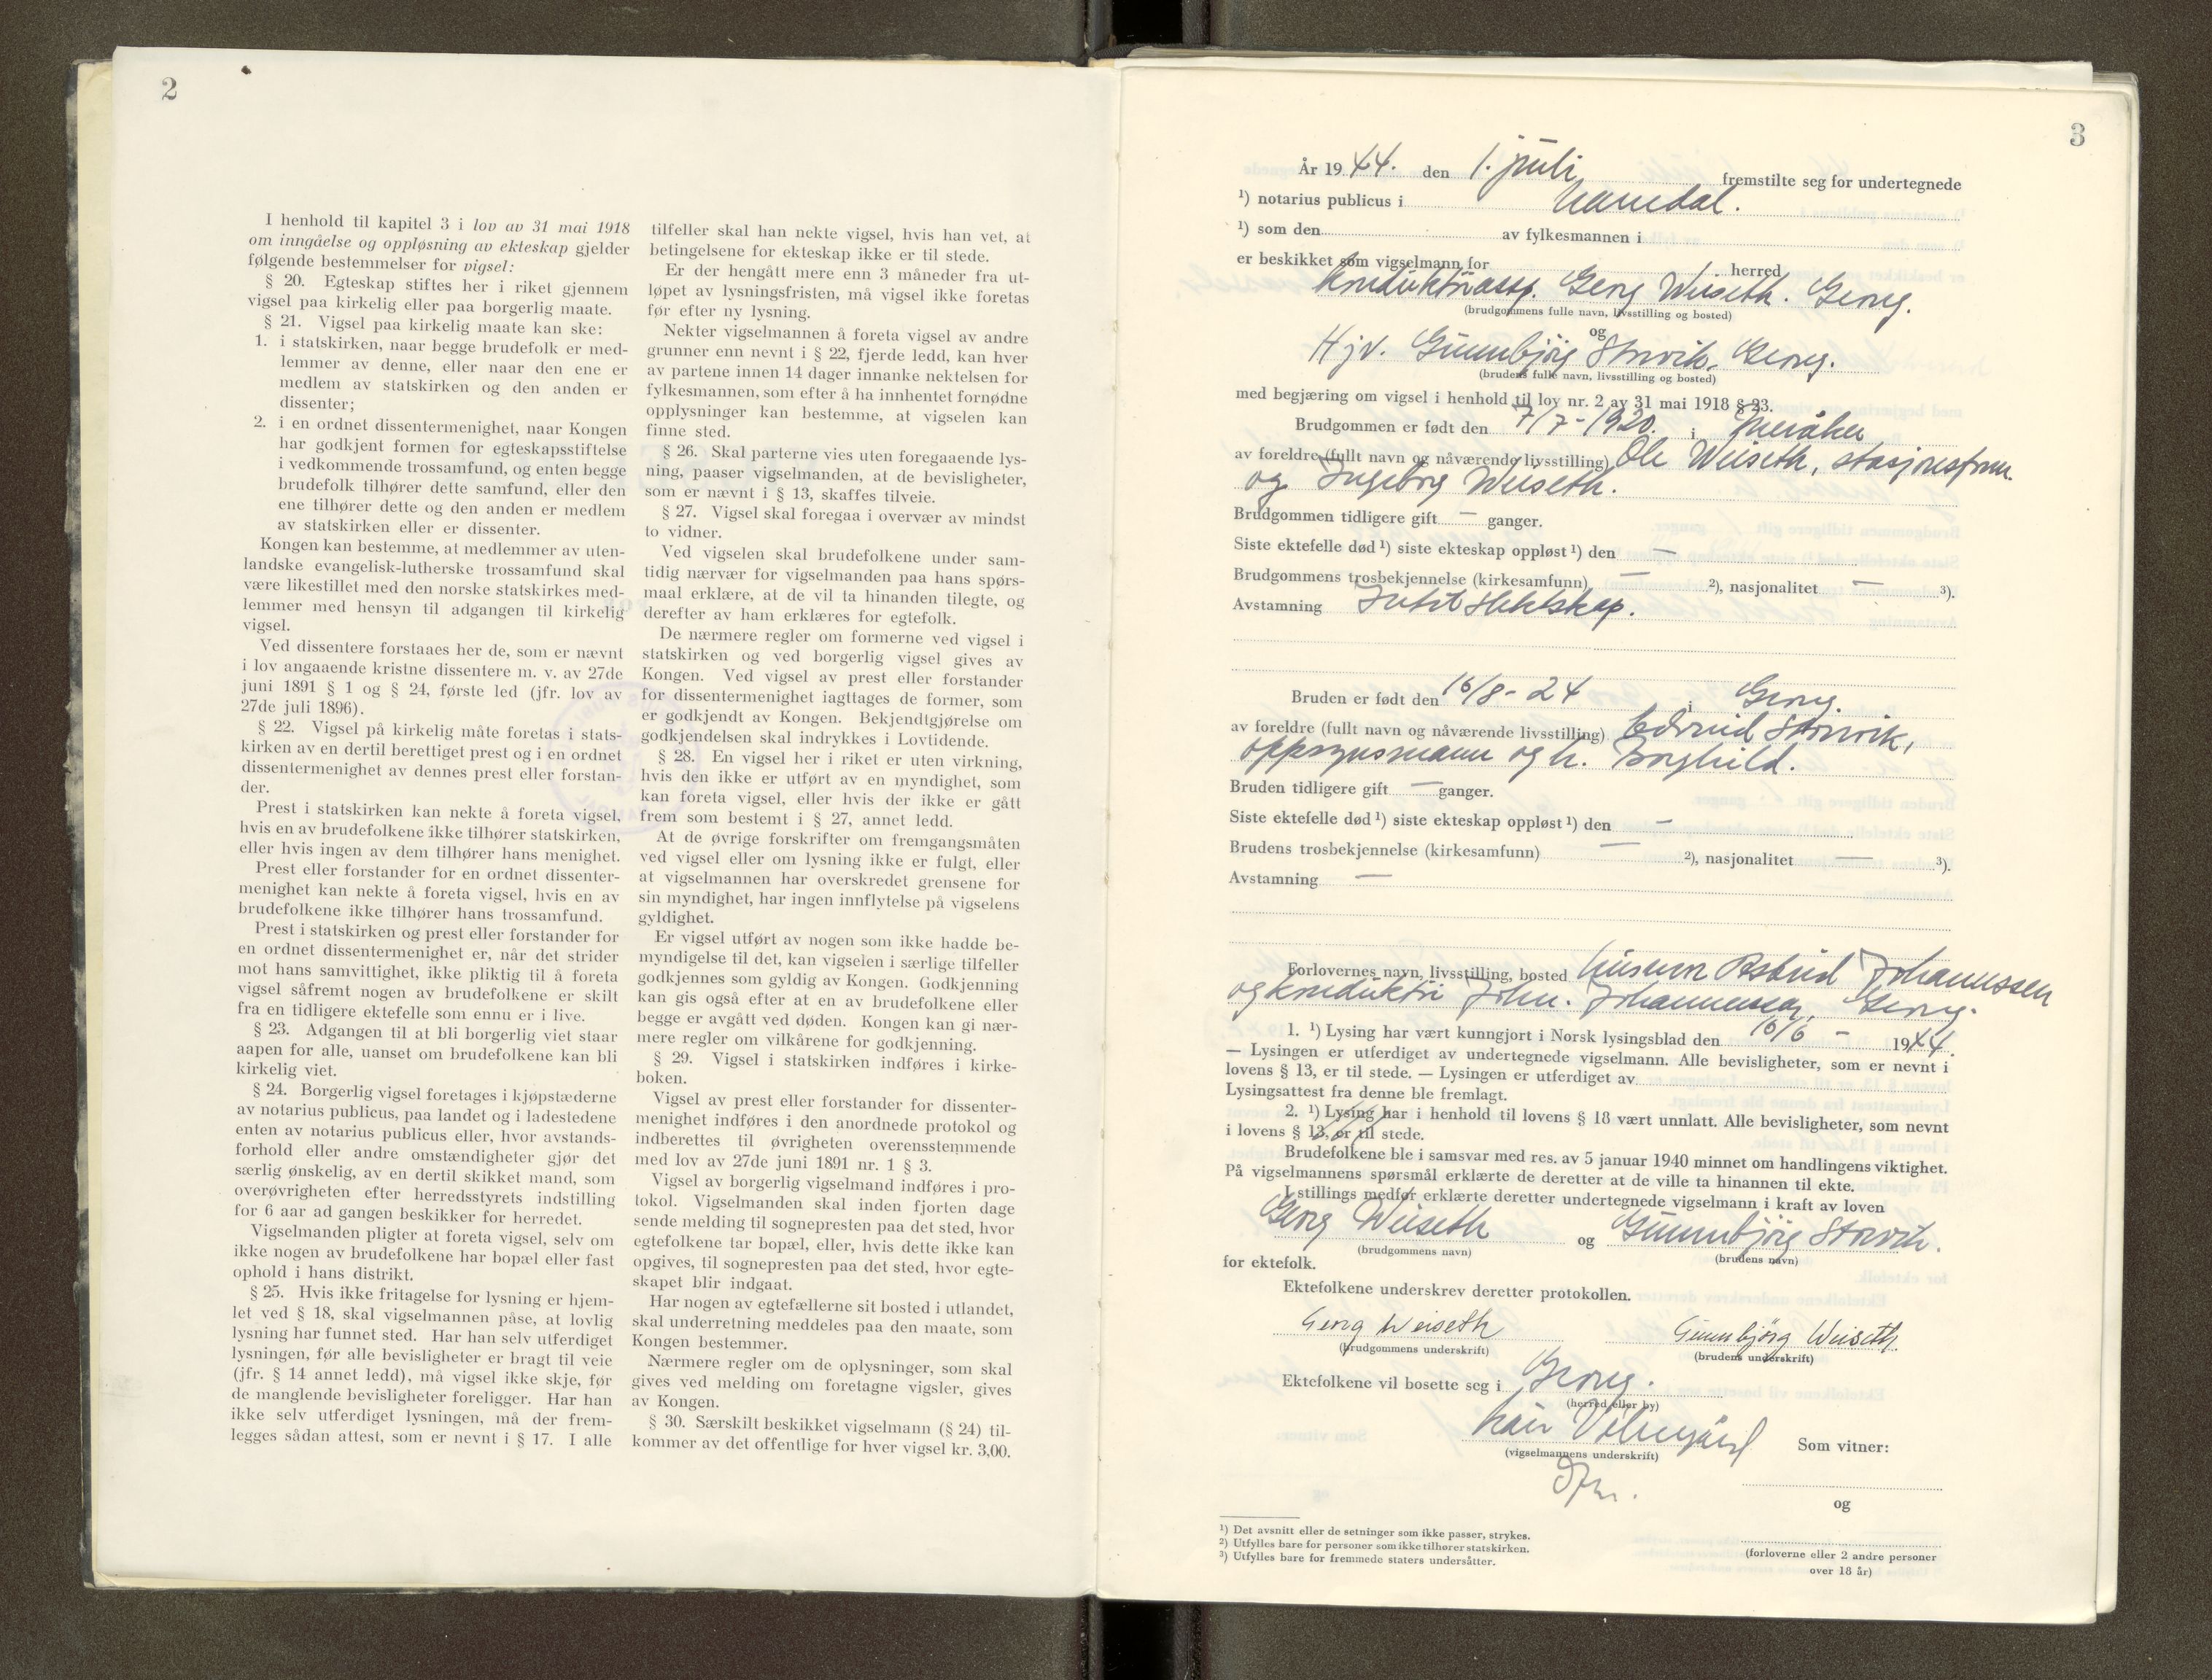 2
I henhold til kapitel 3 i lov av 31 mai 1918
om inngåelse og oppløsning av ekteskap gjelder
følgende bestemmelser for vigsel:
§ 20. Egteskap stiftes her i riket gjennem
vigsel paa kirkelig eller paa borgerlig maate.
§ 21. Vigsel paa kirkelig maate kan ske:
1. i statskirken, naar begge brudefolk er med-
lemmer av denne, eller naar den ene er
medlem av statskirken og den anden er
dissenter;
2. i en ordnet dissentermenighet, naar Kongen
har godkjent formen for egteskapsstiftelse
i vedkommende trossamfund, og enten begge
brudefolk tilhører dette samfund, eller den
ene tilhører dette og den anden er medlem
av statskirken eller er dissenter.
Kongen kan bestemme, at medlemmer av uten-
landske evangelisk-lutherske trossamfund skal
være likestillet med den norske statskirkes med-
lemmer med hensyn til adgangen til kirkelig
vigsel.
Ved dissentere forstaaes her de, som er nævnt
i lov angaaende kristne dissentere m. v. av 27de
juni 1891 § 1 og § 24, første led (jfr. lov av
27de juli 1896).
§ 22. Vigsel på kirkelig måte foretas i stats-
kirken av en dertil berettiget prest og i en ordnet
dissentermenighet av dennes prest eller forstan-
der.
Prest i statskirken kan nekte å foreta vigsel,
hvis en av brudefolkene ikke tilhører statskirken,
eller hvis ingen av dem tilhører hans menighet.
Prest eller forstander for en ordnet dissenter-
menighet kan nekte å foreta vigsel, hvis en av
brudefolkene ikke tilhører hans trossamfund.
Prest i statskirken og prest eller forstander for
en ordnet dissentermenighet er, når det strider
mot hans samvittighet, ikke pliktig til å foreta
vigsel såfremt nogen av brudefolkene er skilt
fra en tidligere ektefelle som ennu er i live.
§ 23. Adgangen til at bli borgerlig viet staar
aapen for alle, uanset om brudefolkene kan bli
kirkelig viet.
§ 24. Borgerlig vigsel foretages i kjøpstæderne
av notarius publicus, paa landet og i ladestedene
enten av notarius publicus eller, hvor avstands-
forhold eller andre omstændigheter gjør det
særlig ønskelig, av en dertil skikket mand, som
overøvrigheten efter herredsstyrets indstilling
for 6 aar ad gangen beskikker for herredet.
Vigselmanden pligter at foreta vigsel, selv om
ikke nogen av brudefolkene har bopæl eller fast
ophold i hans distrikt.
§ 25. Hvis ikke fritagelse for lysning er hjem-
let ved § 18, skal vigselmannen påse, at lovlig
lysning har funnet sted. Har han selv utferdiget
lysningen, før alle bevisligheter er bragt til veie
(jfr. § 14 annet ledd), må vigsel ikke skje, før
de manglende bevisligheter foreligger. Har han
ikke selv utferdiget lysningen, må der frem-
legges sådan attest, som er nevnt i § 17. I alle
tilfeller skal han nekte vigsel, hvis han vet, at
betingelsene for ekteskap ikke er til stede.
Er der hengått mere enn 3 måneder fra ut-
løpet av lysningsfristen, må vigsel ikke foretas
før efter ny lysning.
Nekter vigselmannen å foreta vigsel av andre
grunner enn nevnt i § 22, fjerde ledd, kan hver
av partene innen 14 dager innanke nektelsen for
fylkesmannen, som efter å ha innhentet fornødne
opplysninger kan bestemme, at vigselen kan
finne sted.
§ 26. Skal parterne vies uten foregaaende lys-
ning, paaser vigselmanden, at de bevisligheter,
som er nævnt i § 13, skaffes tilveie.
§ 27. Vigsel skal foregaa i overvær av mindst
to vidner.
Ved vigselen skal brudefolkene under sam-
tidig nærvær for vigselmanden paa hans spørs-
maal erklære, at de vil ta hinanden tilegte, og
derefter av ham erklæres for egtefolk.
De nærmere regler om formerne ved vigsel i
statskirken og ved borgerlig vigsel gives av
Kongen. Ved vigsel av prest eller forstander
for dissentermenighet iagttages de former, som
er godkjendt av Kongen. Bekjendtgjørelse om
godkjendelsen skal indrykkes i Lovtidende.
§ 28. En vigsel her i riket er uten virkning,
hvis den ikke er utført av en myndighet, som
kan foreta vigsel, eller hvis der ikke er gått
frem som bestemt i § 27, annet ledd.
At de øvrige forskrifter om fremgangsmåten
ved vigsel eller om lysning ikke er fulgt, eller
at vigselmannen har overskredet grensene for
sin myndighet, har ingen innflytelse på vigselens
gyldighet.
Er vigsel utført av nogen som ikke hadde be-
myndigelse til det, kan vigselen i særlige tilfeller
godkjennes som gyldig av Kongen. Godkjenning
kan gis også efter at en av brudefolkene eller
begge er avgått ved døden. Kongen kan gi nær-
mere regler om vilkårene for godkjenning.
§ 29. Vigsel i statskirken indføres i kirke-
boken.
Vigsel av prest eller forstander for dissenter-
menighet indføres i den anordnede protokol og
indberettes til øvrigheten overensstemmende
med lov av 27de juni 1891 nr. 1 § 3.
Vigsel av borgerlig vigselmand indføres i pro-
tokol. Vigselmanden skal inden fjorten dage
sende melding til sognepresten paa det sted, hvor
egtefolkene tar bopæl, eller, hvis dette ikke kan
opgives, til sognepresten paa det sted, hvor egte-
skapet blir indgaat.
Har nogen av egtefællerne sit bosted i utlandet,
skal underretning meddeles paa den maate, som
Kongen bestemmer.
Nærmere regler om de oplysninger, som skal
gives ved melding om foretagne vigsler, gives
av Kongen.
§ 30. Særskilt beskikket vigselmann (§ 24) til-
kommer av det offentlige for hver vigsel kr. 3,00.
3
År 1944. den 1. juli fremstilte seg for undertegnede
¹) notarius publicus i Namdal.
¹) som den av fylkesmannen i
er beskikket som vigselmann for herred
konduktørasp. Georg Weiseth. Grong.
(brudgommens fulle navn, livsstilling og bosted)
og
Hjv. Gunnbjørg Storvik, Grong.
(brudens fulle navn, livsstilling og bosted)
med begjæring om vigsel i henhold til lov nr. 2 av 31 mai 1918 § 23.
Brudgommen er født den 7/7-1920. i Meråker
av foreldre (fullt navn og nåværende livsstilling) Ole Weiseth, stasjonsform.
og Ingeborg Weiseth.
Brudgommen tidligere gift — ganger.
Siste ektefelle død ¹) siste ekteskap oppløst ¹) den —
Brudgommens trosbekjennelse (kirkesamfunn) — ²), nasjonalitet — ³).
Avstamning Intet slektskap.
Bruden er født den 16/8-24 i Grong.
av foreldre (fullt navn og nåværende livsstilling) Edvind Storvik,
oppsynsmann og h. Borghild.
Bruden tidligere gift — ganger.
Siste ektefelle død ¹) siste ekteskap oppløst ¹) den —
Brudens trosbekjennelse (kirkesamfunn) — ²), nasjonalitet — ³).
Avstamning —
Forlovernes navn, livsstilling, bosted husmor Astrid Johannssen
og konduktør John. Johannessen, Grong.
1. ¹) Lysing har vært kunngjort i Norsk lysingsblad den 16/6 - 1944.
— Lysingen er utferdiget av undertegnede vigselmann. Alle bevisligheter, som er nevnt i
lovens § 13, er til stede. — Lysingen er utferdiget av
Lysingsattest fra denne ble fremlagt.
2. ¹) Lysing har i henhold til lovens § 18 vært unnlatt. Alle bevisligheter, som nevnt
i lovens § 13, er til stede.
Brudefolkene ble i samsvar med res. av 5 januar 1940 minnet om handlingens viktighet.
På vigselmannens spørsmål erklærte de deretter at de ville ta hinannen til ekte.
I stillings medfør erklærte deretter undertegnede vigselmann i kraft av loven
Georg Weiseth og Gunnbjørg Storvik.
(brudgommens navn) (brudens navn)
for ektefolk.
Ektefolkene underskrev deretter protokollen.
Georg Weiseth Gunnbjørg Weiseth
(brudgommens underskrift) (brudens underskrift)
Ektefolkene vil bosette seg i Grong.
(herred eller by)
Som vitner:
(vigselmannens underskrift)
og
¹) Det avsnitt eller de setninger som ikke passer, strykes.
²) Utfylles bare for personer som ikke tilhører statskirken.
³) Utfylles bare for fremmede staters undersåtter.
(forloverne eller 2 andre personer
over 18 år)